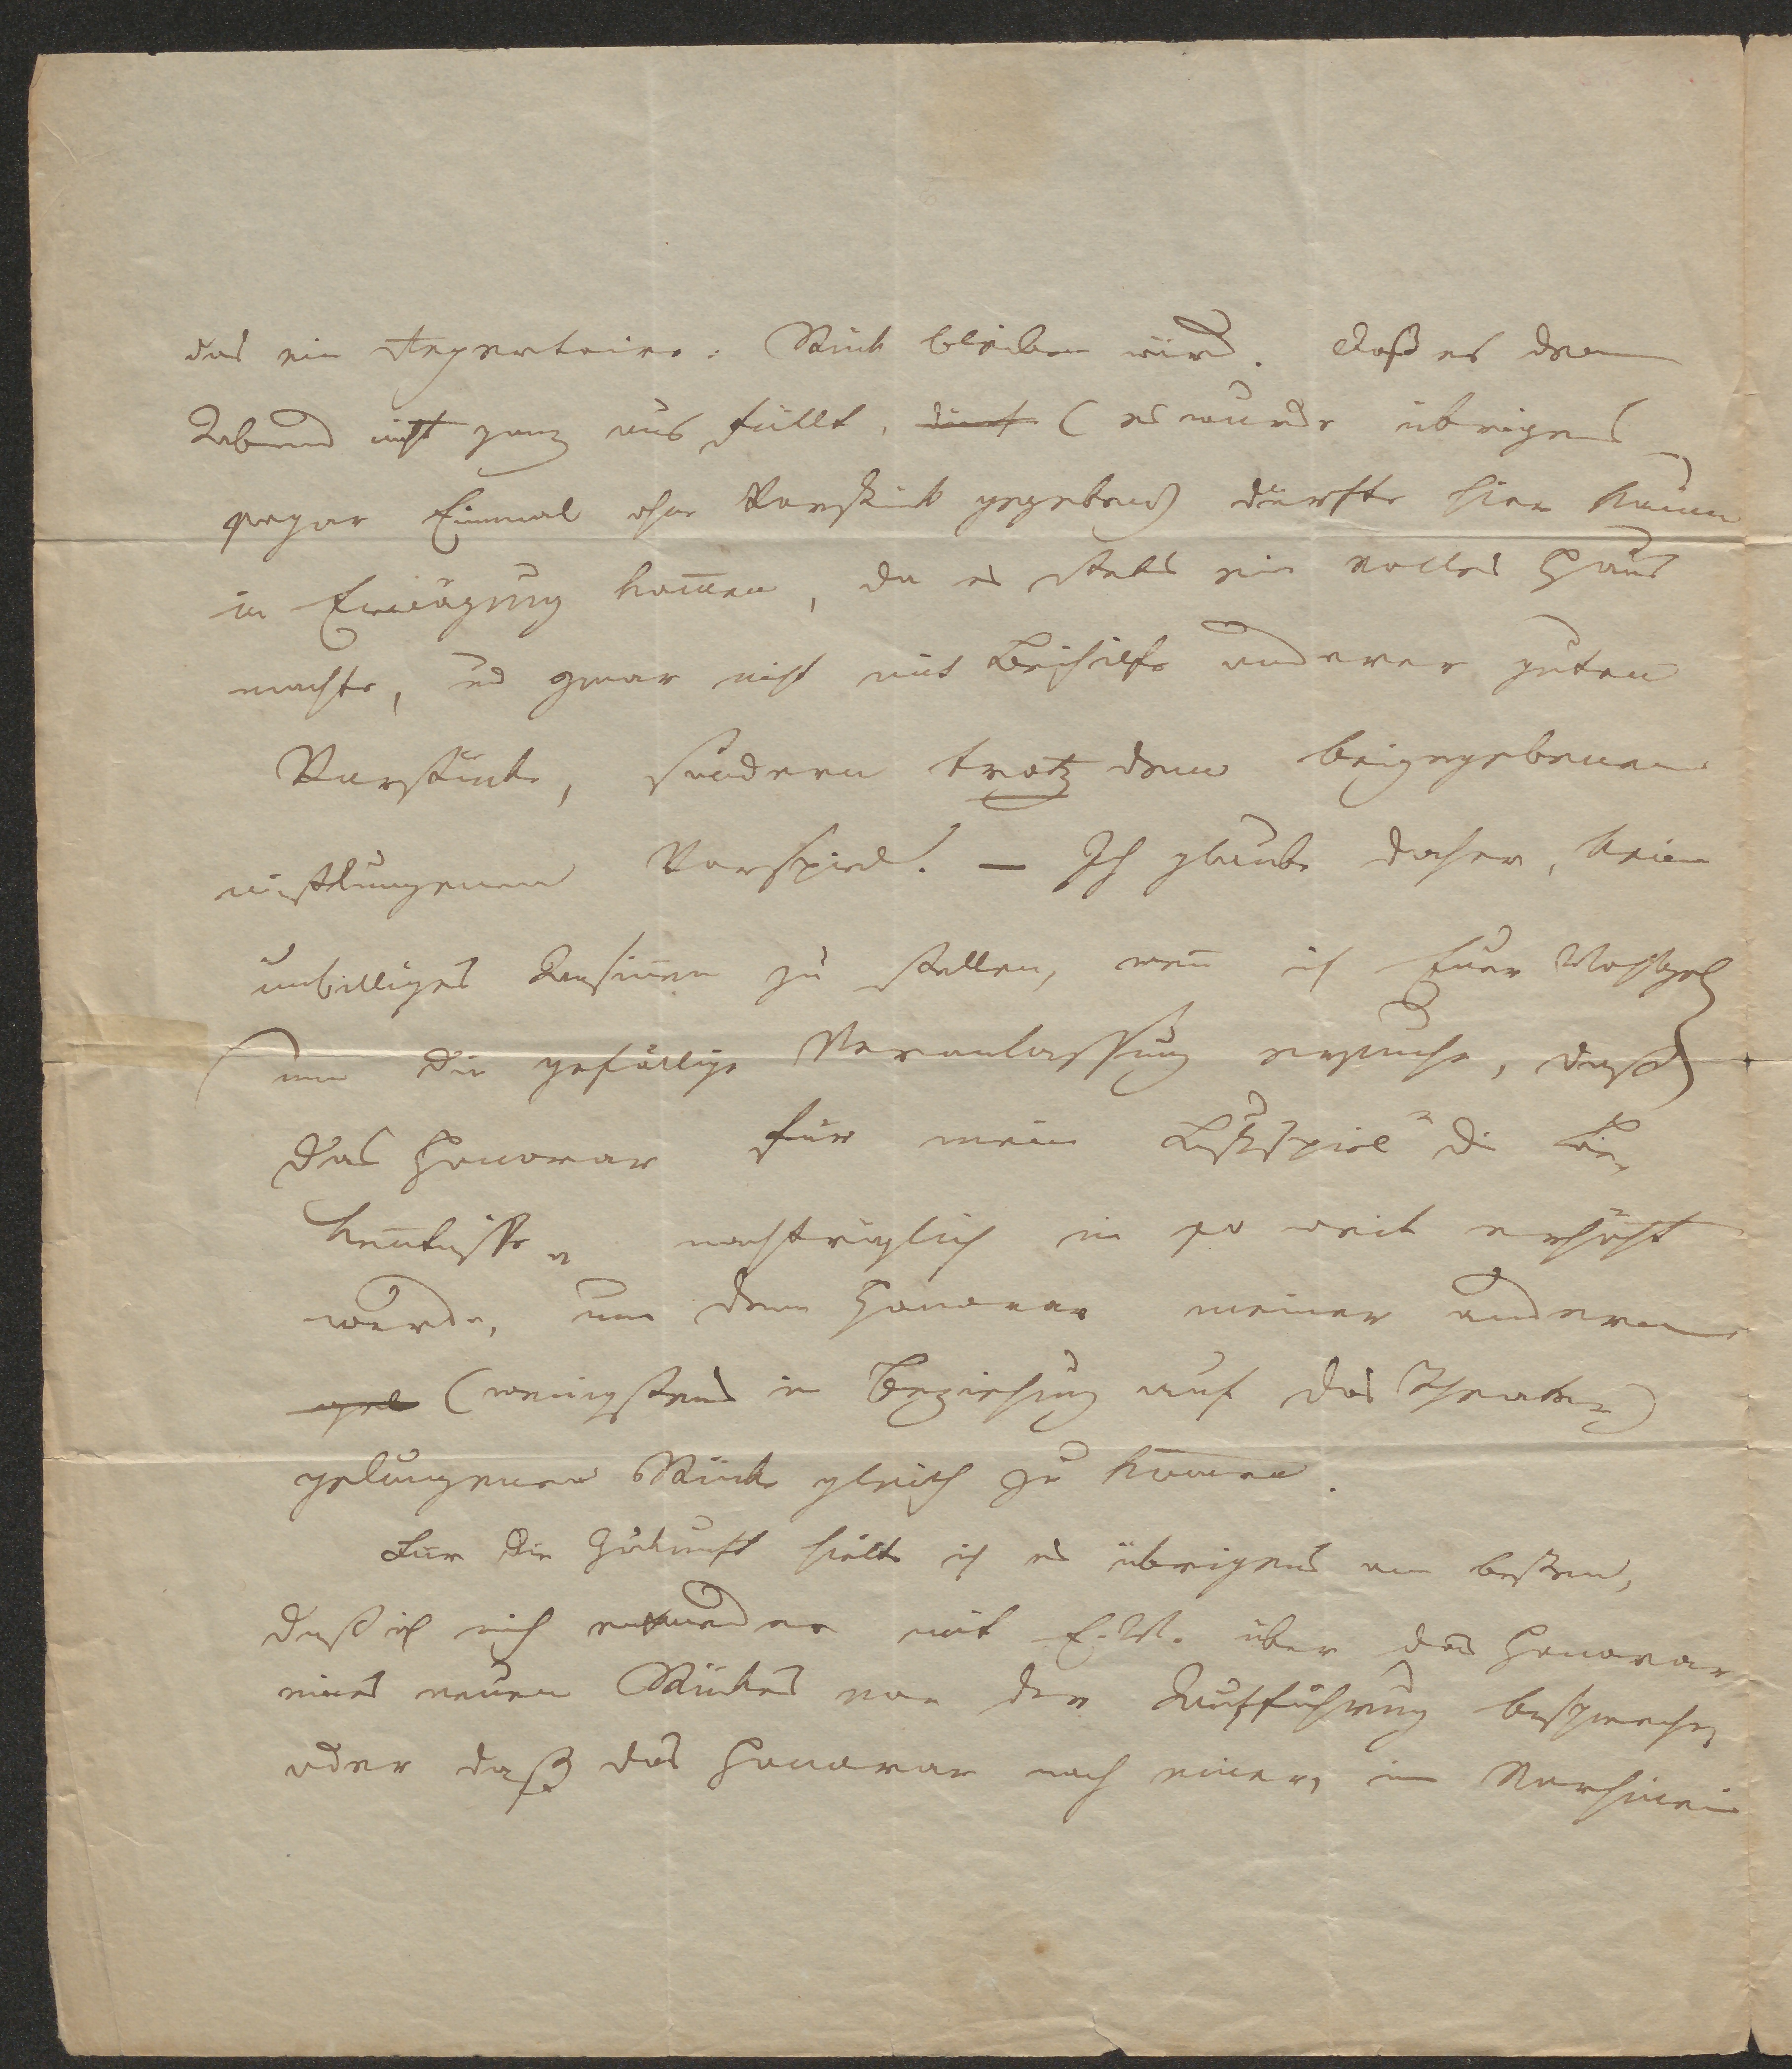 das ein Repertoire-Stück bleiben wird. Daß es den
Abend nicht ganz aus füllt, dürft (es wurde übrigens
sogar Einmal ohne Vorstück gegeben) dürfte hier kaum
in Erwägung kom̅en, da es stets ein volles Haus
machte, und zwar nicht mit Beihilfe anderer guten
Vorstücke, sondern trotz dem beigegebenen
mißlungenen Vorspiel. — Ich glaube daher, kein
unbilliges Ansinnen zu stellen, wen̅ ich Euer Wohlgeb
um die gefällige Veranlassung ersuche, daß
das Honorar für mein Lustspiel "die Be-
ken̅tnisse" nachträglich in so weit erhöht
werde, um dem Honorar meiner anderen
gel (wenigstens in Beziehung auf das Theater)
gelungenen Stücke gleich zu kom̅en.
Für die Zukunft hielte ich es übrigens am besten,
daß ich mich entweder mit E. W. über das Honorar
eines neuen Stückes vor der Aufführung bespreche,
oder daß das Honorar nach einer, im Vorhinein